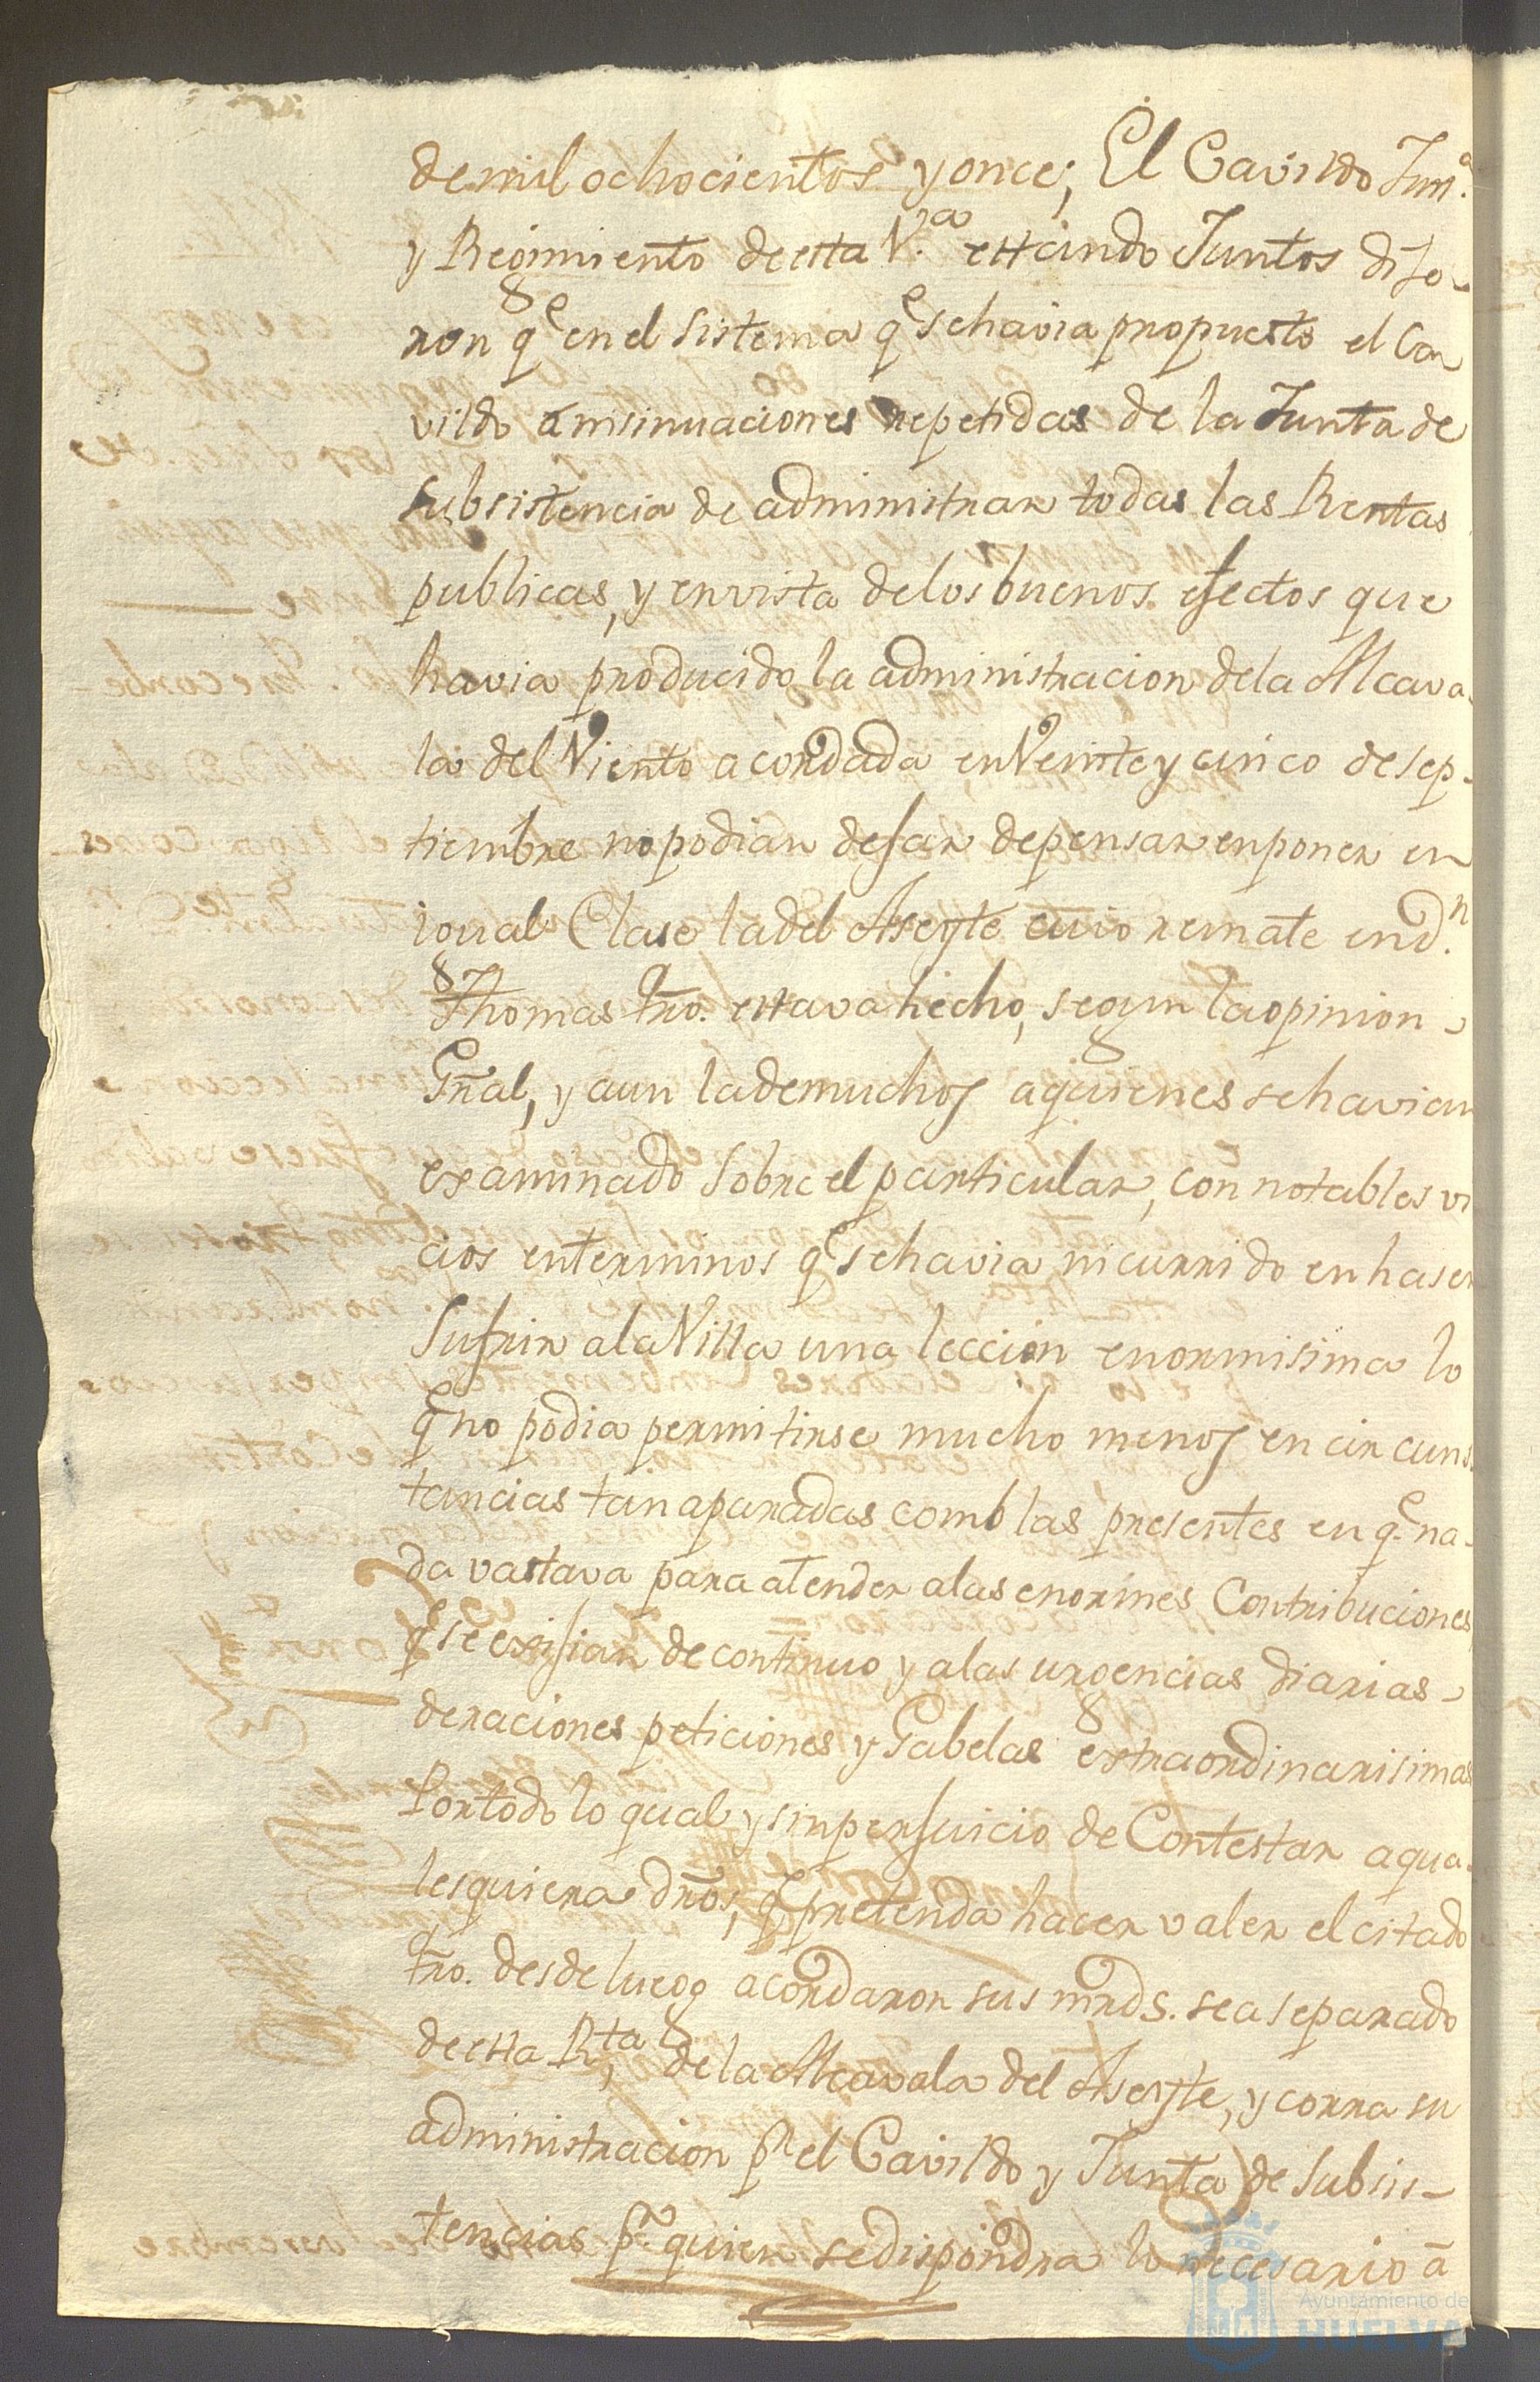 de mil ochocientos y once; El Cavildo Just.ª
y Regimiento de esta V.ª estando Juntos dije-
ron q.e en el sistema q.e se havia propuesto el Ca
vildo a insinuaciones repetidas de la Junta de
Subsistencia de administrar todas las Rentas
publicas, y en vista de los buenos efectos que
havia producido la administracion de la Alcava-
la del Viento acordada en Veinte y cinco de sep-
tiembre no podian dejar de pensar en poner en
igual Clase la del Aseyte cuio remate en d.n
Thomas tro. estava hecho, segun la opinion
Gñal, y aun la de muchos a quienes se havian
examinado sobre el particular, con notables vi
cios en terminos q.e se havia incurrido en haser
Sufrir a la Villa una leccion enormisima lo
q.e no podia permitirse mucho menos en circuns-
tancias tan apuradas como las presentes en q.e na-
da vastava para atender a las enormes Contribuciones
q.e se exijian de continuo y a las urgencias diarias
de raciones peticiones y Gabelas extraordinarisimas
Por todo lo qual y sin perjuicio de Contestar a qua-
lesquiera dros, q.e pretenda hacer valer el citado
tro. desde luego acordaron sus mrds. sea separado
de esta R.ta de la Alcavala del Aseyte, y corra su
administracion p.r el Cavildo y Junta de Subsis-
tencias p.r quien se dispondra lo necesario á
Ayuntamiento de
HUELVA